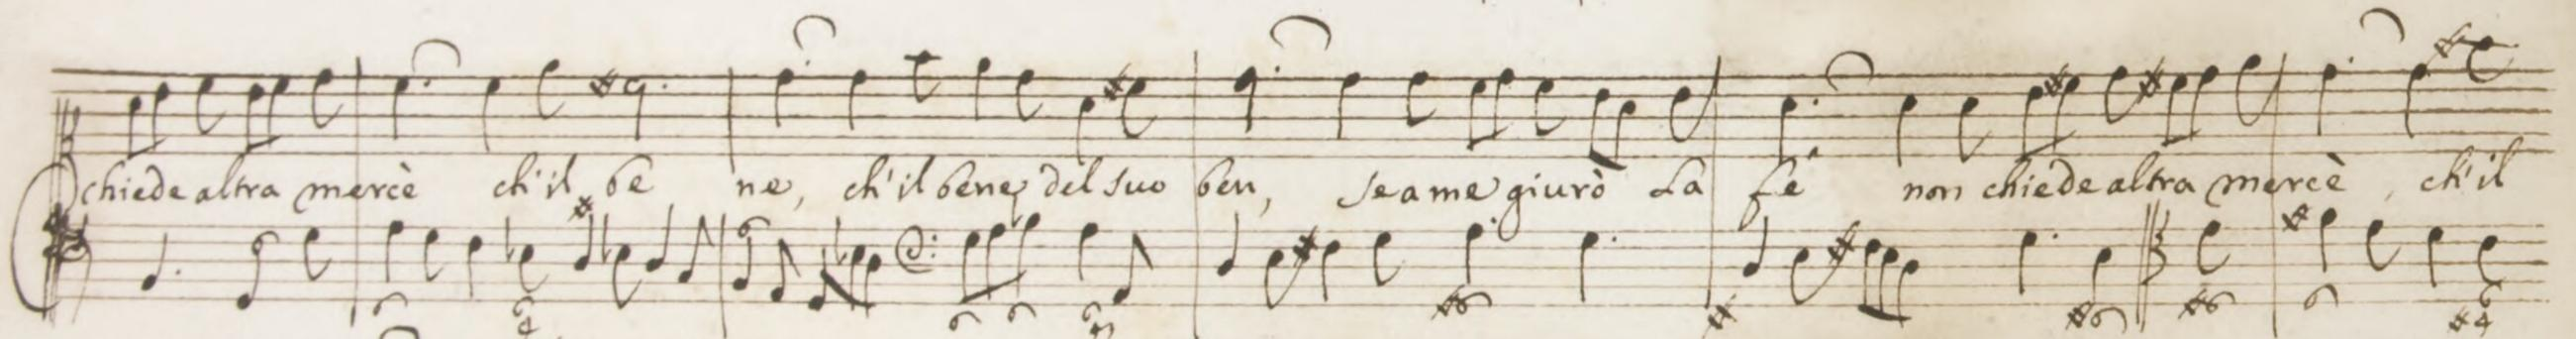 chiede altra mercè ch'il be ne, ch'il bene del suo ben, se a me giurò La fè non chiede altra mercè, ch'il